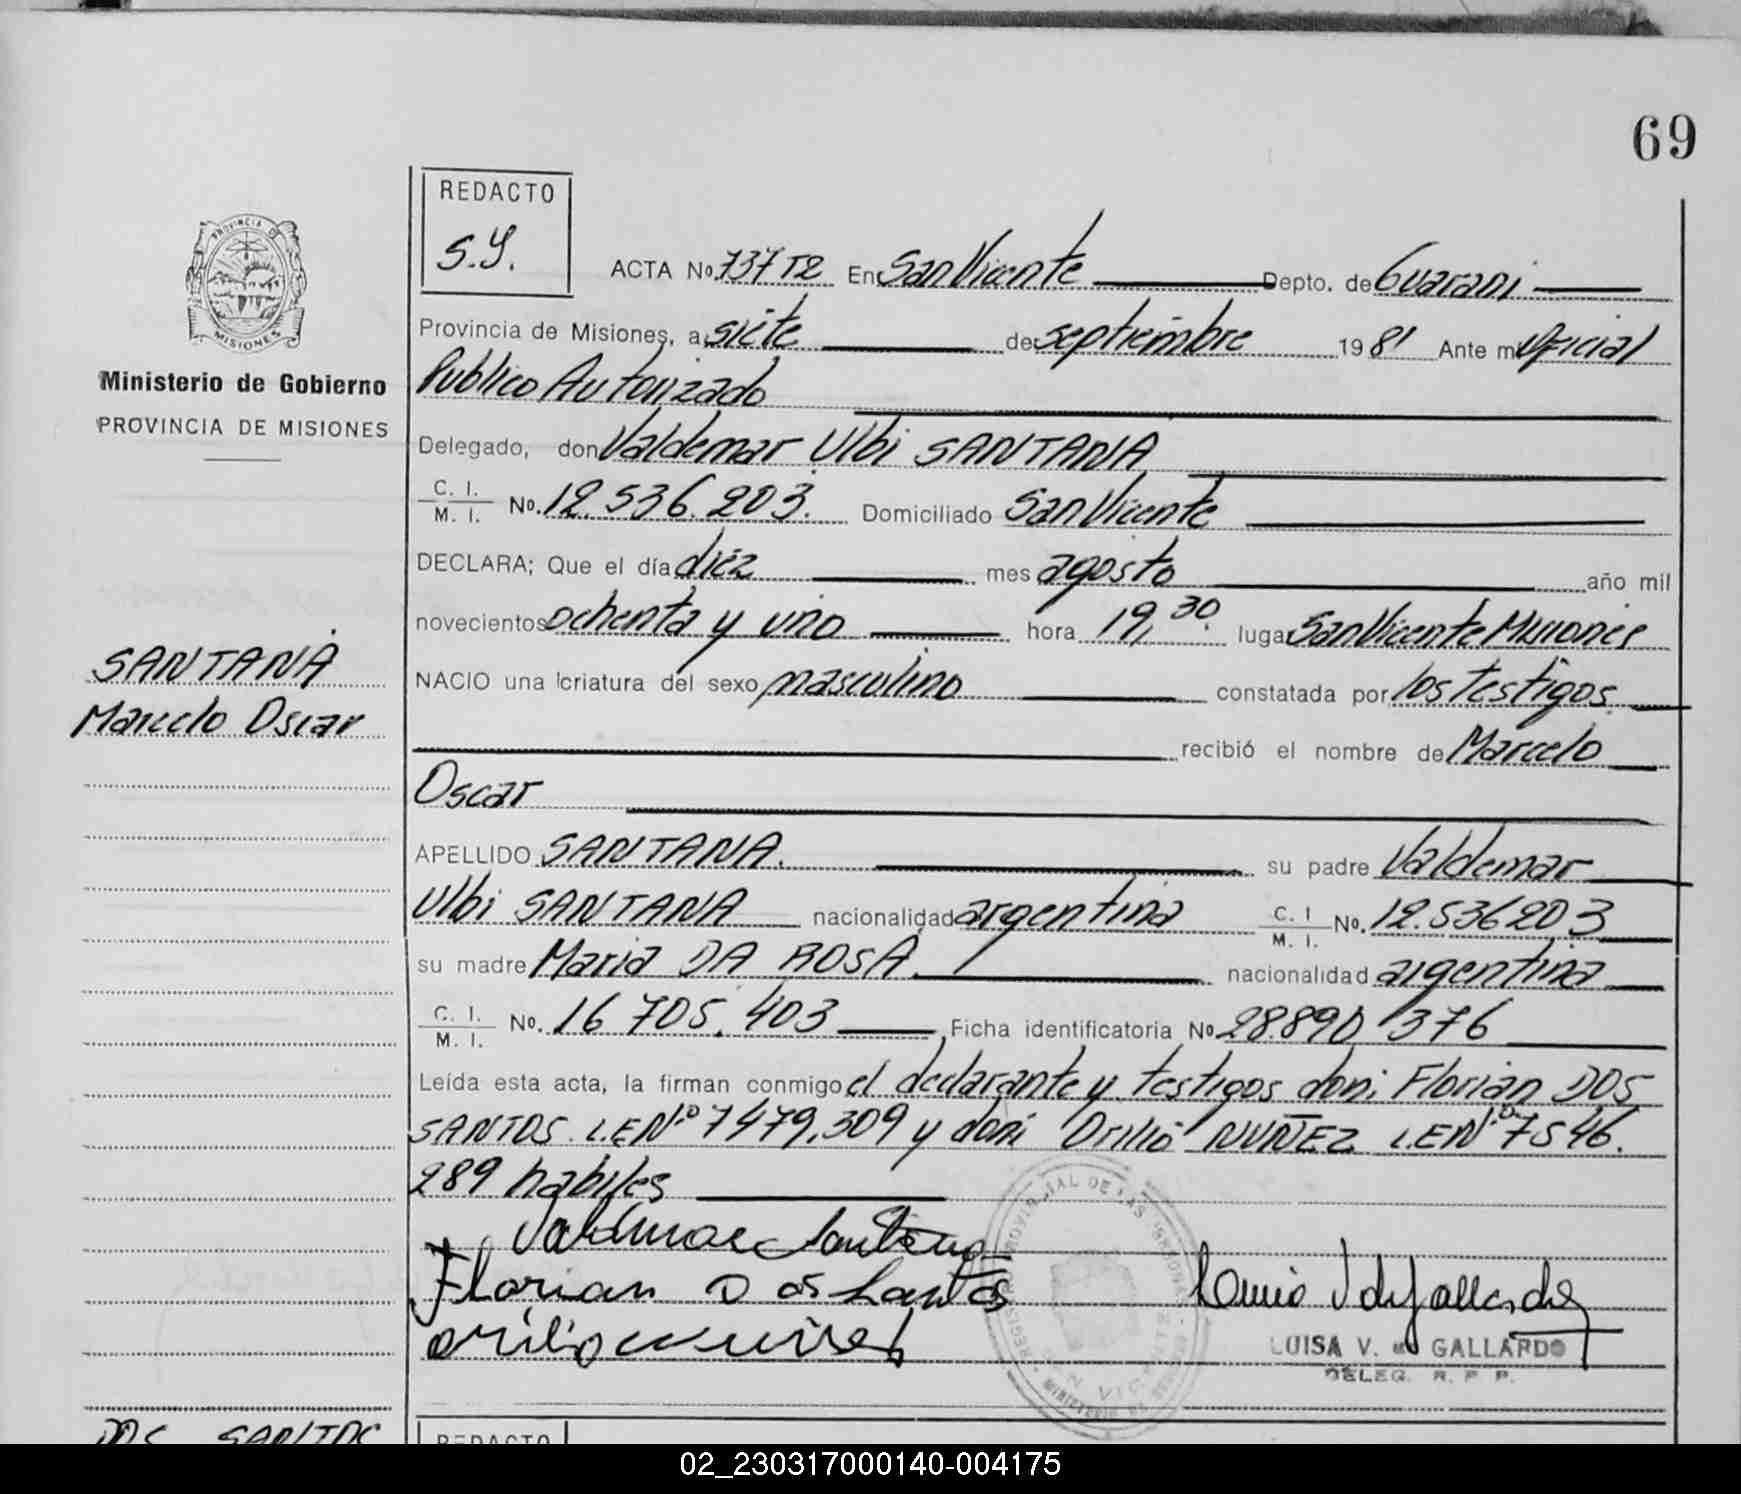 69
REDACTO
S.Y.
PROVINCIA D MISIONES
Ministerio de Gobierno
PROVINCIA DE MISIONES
SANTANA
Marcelo Oscar
ACTA No. 737 T2 En San Vicente Depto. de Guarani
Provincia de Misiones, a siete de septiembre 1981 Ante mi Oficial
Publico Autorizado
Delegado, don Valdemar Ulbi SANTANA
C. I. M. I. No. 12.536.203. Domiciliado San Vicente
DECLARA; Que el día diez mes agosto año mil
novecientos ochenta y uno hora 19,30. lugar San Vicente Misiones
NACIO una criatura del sexo masculino constatada por los testigos
recibió el nombre de Marcelo
Oscar
APELLIDO SANTANA. su padre Valdemar
Ulbi SANTANA nacionalidad argentina C. I M. I. No. 12.536203
su madre Maria DA ROSA. nacionalidad argentina
C. I. M. I. No. 16 705.403 Ficha identificatoria No 28.890 376
Leída esta acta, la firman conmigo el declarante y testigos don: Florian DOS
SANTOS L.E.Nº 7479.309 y don: Orilio NUÑEZ L.E.Nº 7546.
289 habiles
Valdemar Santana
Florian Dos Santos
LUISA V. GALLARDO
DELEG. R. P. P.
DOS SANTOS
REDACTO
02_230317000140-004175